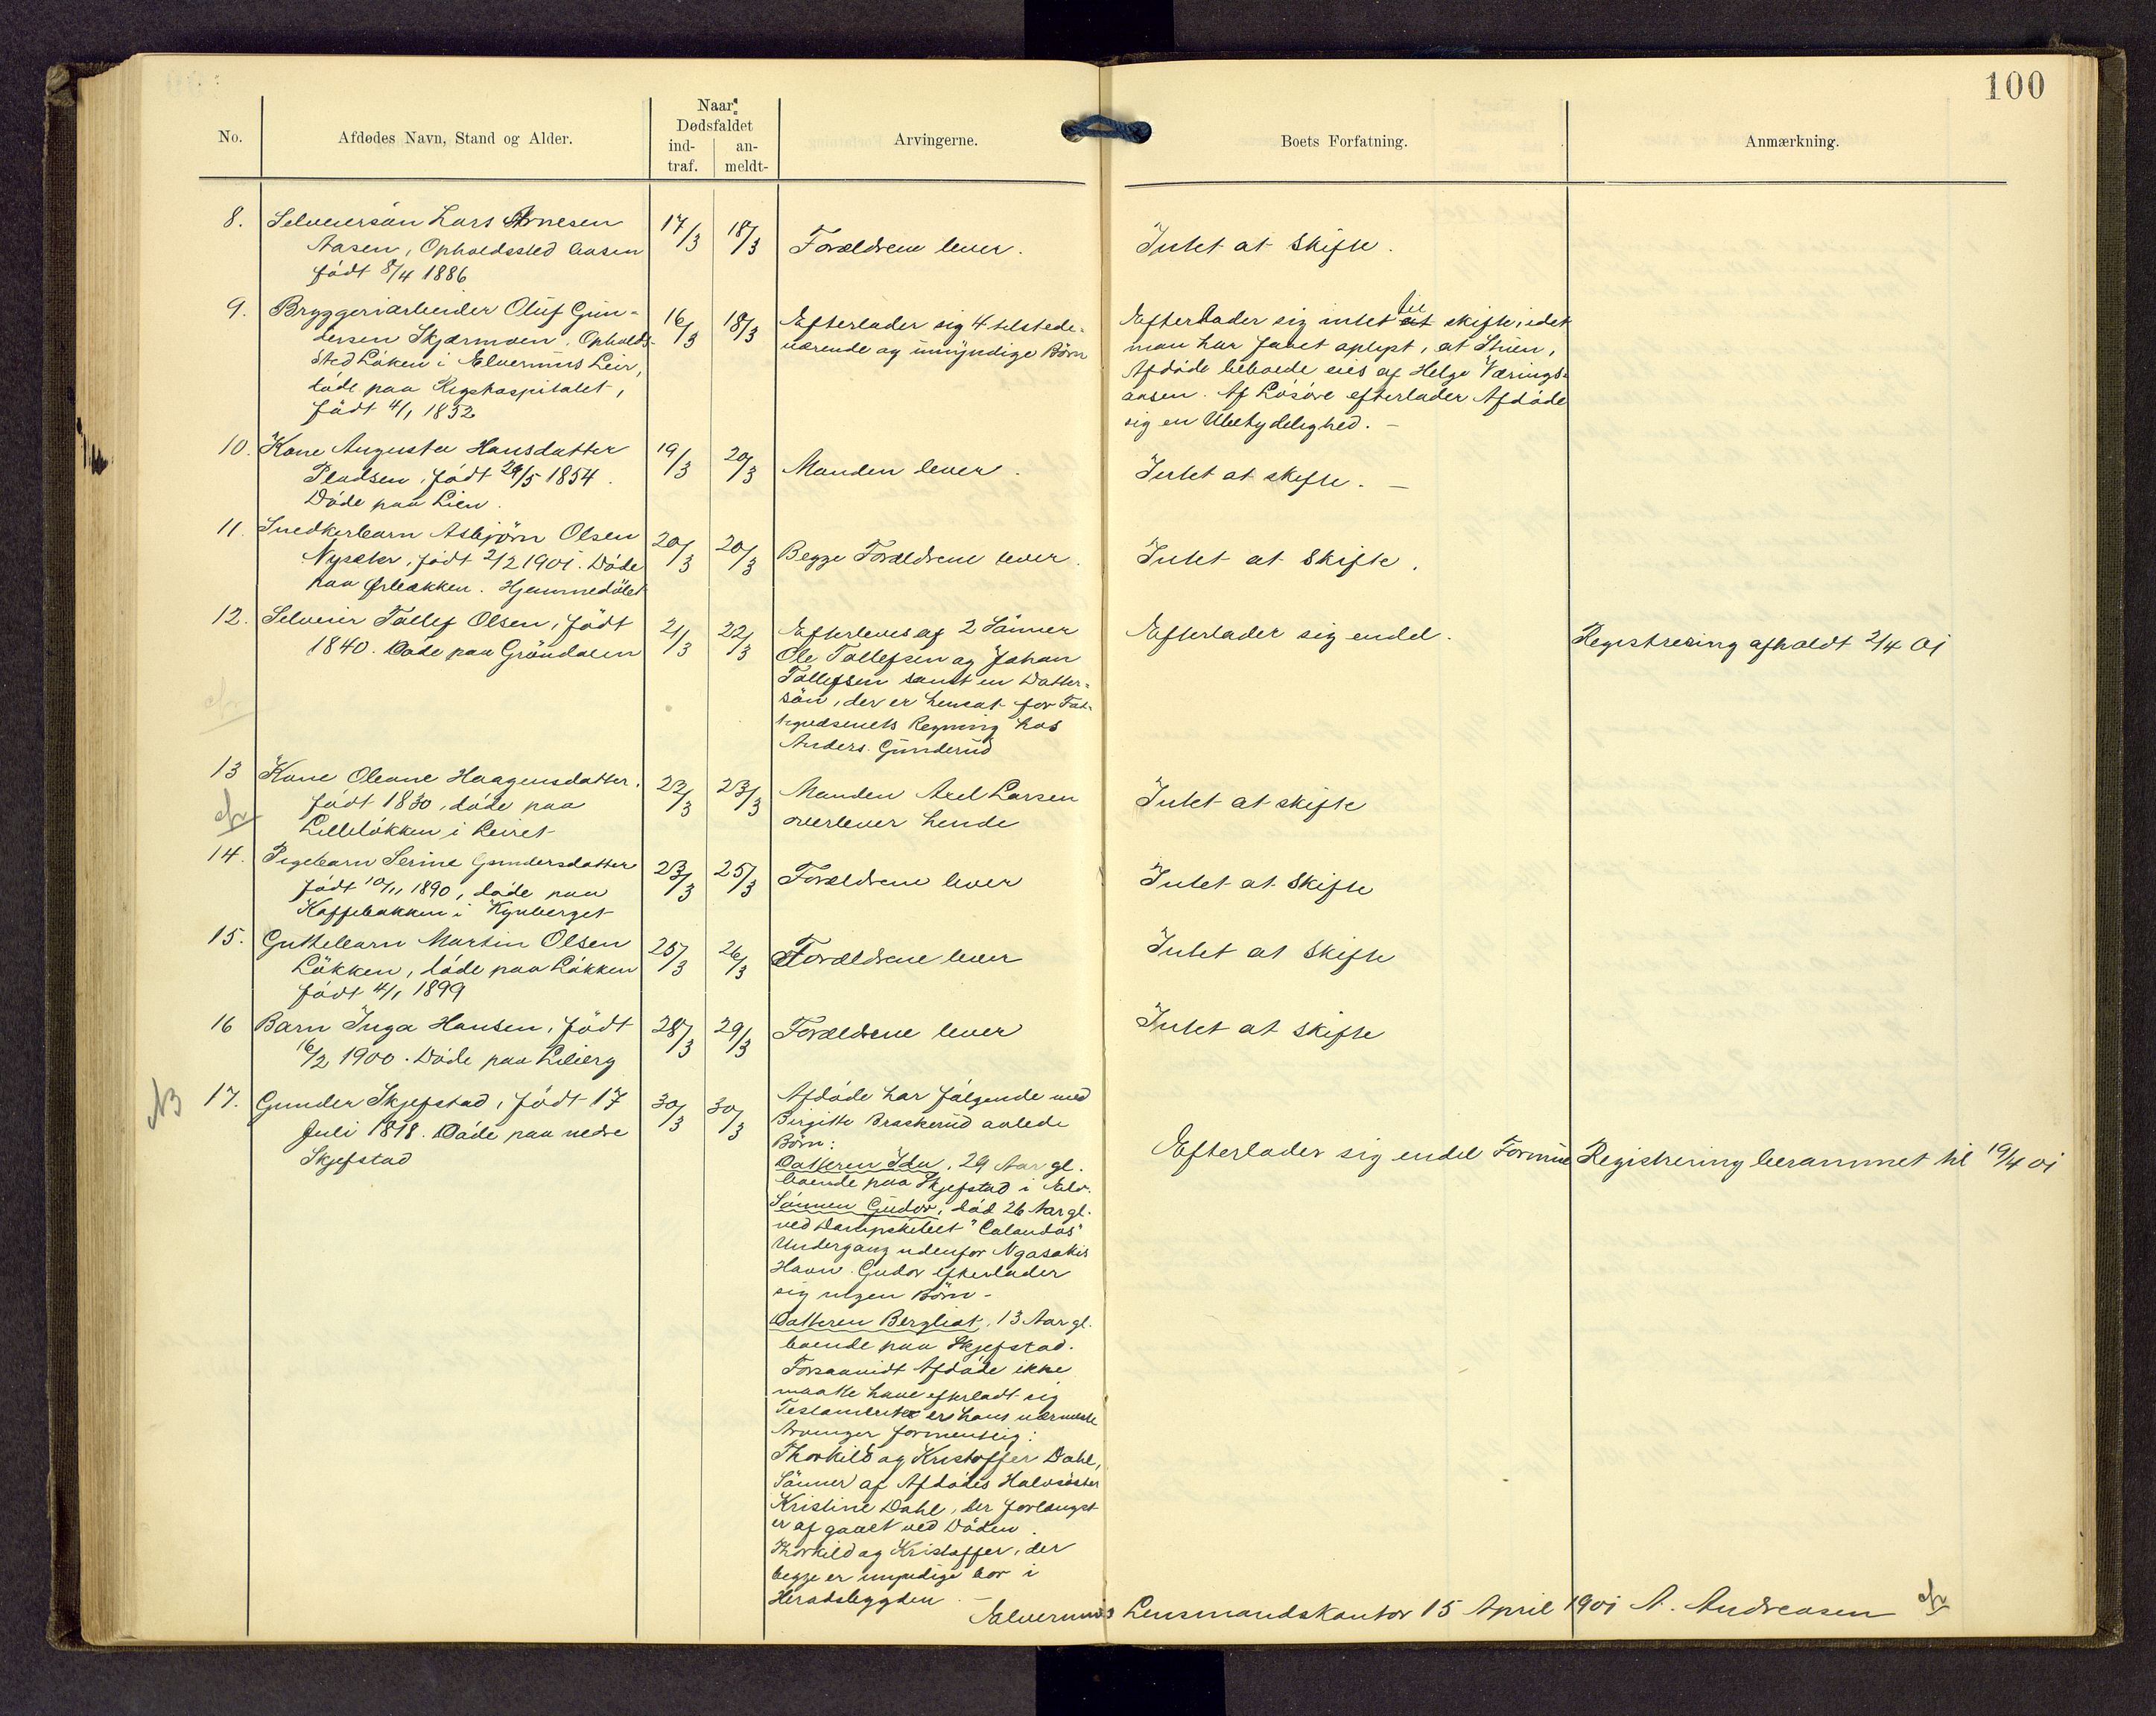 100
No.
Afdødes Navn, Stand og Alder.
Naar
Dødsfaldet
ind-
traf.
an-
meldt-
Arvingerne.
Boets Forfatning.
Anmærkning.
8. Selveiersön Lars Arnesen
Aasen, Opholdssted Aasen
født 8/4 1886
17/3 18/3
Forældrene lever.
Intet at skifte.
9. Bryggeriarbeider Oluf Gun-
dersen Skjærmoen. Opholds-
sted Löken i Elverums Leir,
döde paa Rigshospitalet,
født 4/1 1852
16/3 18/3
Efterlader sig 4 tilstede-
værende og umyndige Börn
Efterlader sig intet til at skifte, idet
man har faaet oplyst, at Stuen,
Afdöde beboede eies af Helge Værings-
aasen. Af Lösöre efterlader Afdöde
sig en Ubetydelighed. –
10. Kone Augusta Hansdatter
Pladsen, født 29/5 1854.
Döde paa Lien.
19/3 20/3
Manden lever.
Intet at skifte. –
11. Snedkerbarn Asbjörn Olsen
Nysæter, født 2/2 1901. Döde
paa Ørbakken. Hjemmedöbt
20/3 20/3
Begge Forældrene lever.
Intet at skifte.
12. Selveier Tollef Olsen, født
1840. Döde paa Gröndalen
21/3 22/3
Efterleves af 2 Sönner
Ole Tollefsen og Johan
Tollefsen samt en Datter-
sön, der er hensat for Fat-
tigvæsenets Regning hos
Anders Gunderud
Efterlader sig endel.
Registrering afholdt 2/4 01
13 Kone Oleane Haagensdatter.
født 1830, döde paa
Lillelökken i Leiret
22/3 23/3
Manden Axel Larsen
overlever hende
Intet at skifte
14. Pigebarn Serine Gundersdatter
født 10/11 1890, döde paa
Kaffebakken i Kynberget
23/3 25/3
Forældrene lever
Intet at skifte
15. Guttebarn Martin Olsen
Lökken, döde paa Lökken
født 4/1 1899
25/3 26/3
Forældrene lever
Intet at skifte
16 Barn Inga Hansen, født
16/2 1900. Döde paa Liberg
28/3 29/3
Forældrene lever
Intet at skifte
NB 17. Gunder Skjefstad, født 17
Juli 1818. Döde paa nedre
Skjefstad
30/3 30/3
Afdöde har fölgende med
Birgitte Braskerud avlede
Börn:
Datteren Ida, 29 Aar gl.
boende paa Skjefstad i Elv.
Sönnen Gudor, död 26 Aar gl.
ved Dampskibet "Calandas"
Undergang udenfor Ngasakis
Havn. Gudor efterlader
sig ingen Börn –
Datteren Bergliot, 13 Aar gl.
boende paa Skjefstad.
Forsaavidt Afdöde ikke
maatte have efterladt sig
Testamente er hans nærmeste
Arvinger formentlig:
Thorkild og Kristoffer Dahl,
Sönner af Afdödes Halvsöster
Kristine Dahl, der forlængst
er afgaaet ved Döden.
Thorkild og Kristoffer, der
begge er myndige bor i
Heradsbygden –
Efterlader sig endel Formue
Registrering berammet til 19/4 01
Elverums Lensmandskontor 15 April 1901 A. Andreasen